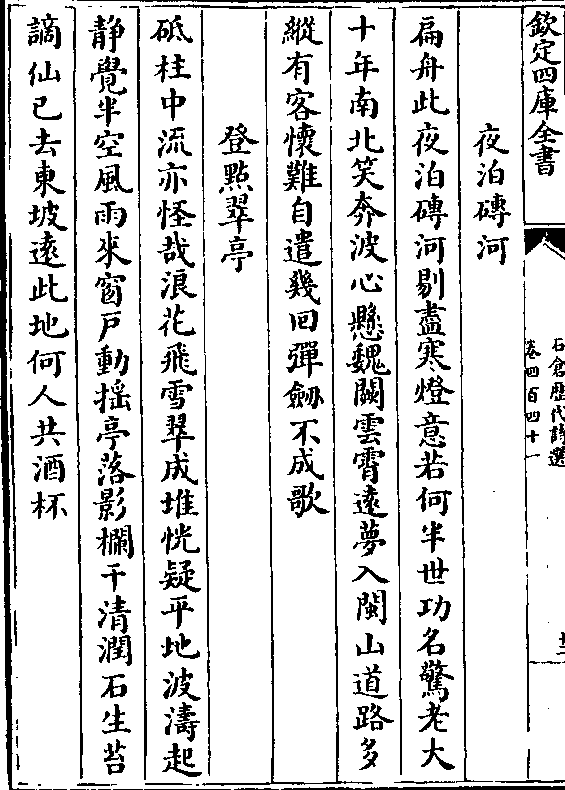 欽定四庫全書
石倉歷代詩選
卷四百四十一
夜泊磚河
扁舟此夜泊磚河剔盡寒燈意若何半世功名驚老大
十年南北笑奔波心懸魏闕雲霄遠夢入閩山道路多
縱有客懷難自遣幾回彈劒不成歌
登點翠亭
砥柱中流亦怪哉浪花飛雪翠成堆恍疑平地波濤起
静覺半空風雨來窗戸動揺亭落影欄干清潤石生苔
謫仙已去東坡遠此地何人共酒杯